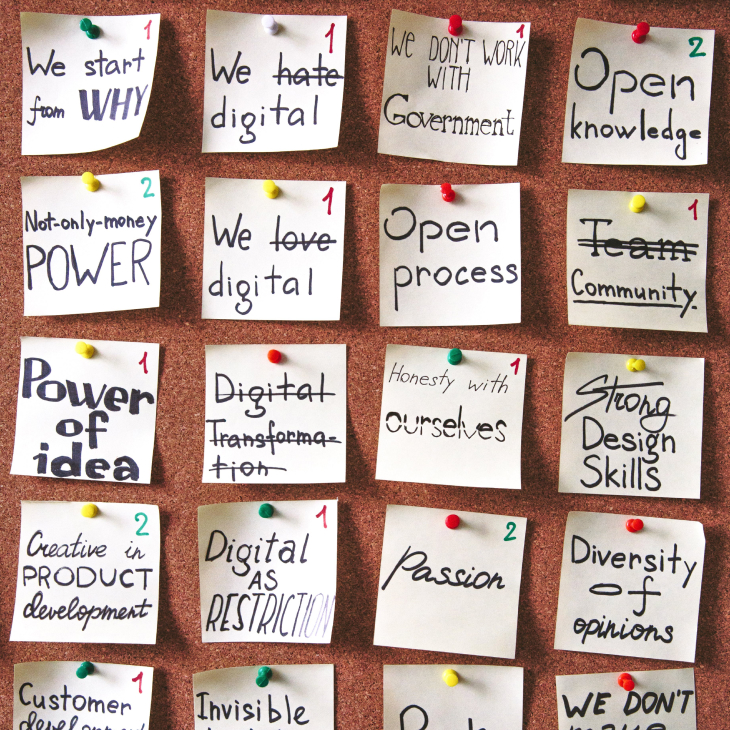 1
We start
from WHY
1
We hate
digital
1
WE DON'T WORK
WITH
Government
2
Open
knowledge
2
Not-only-money
POWER
1
We love
digital
Open
process
1
Team
Community.
1
Power
of
idea
Digital
Transforma-
tion
1
Honesty with
ourselves
Strong
Design
Skills
2
Creative in
PRODUCT
development
1
Digital
AS
RESTRICTION
2
Passion
Diversity
of
opinions
1
Customer
development
Invisible
WE DON'T